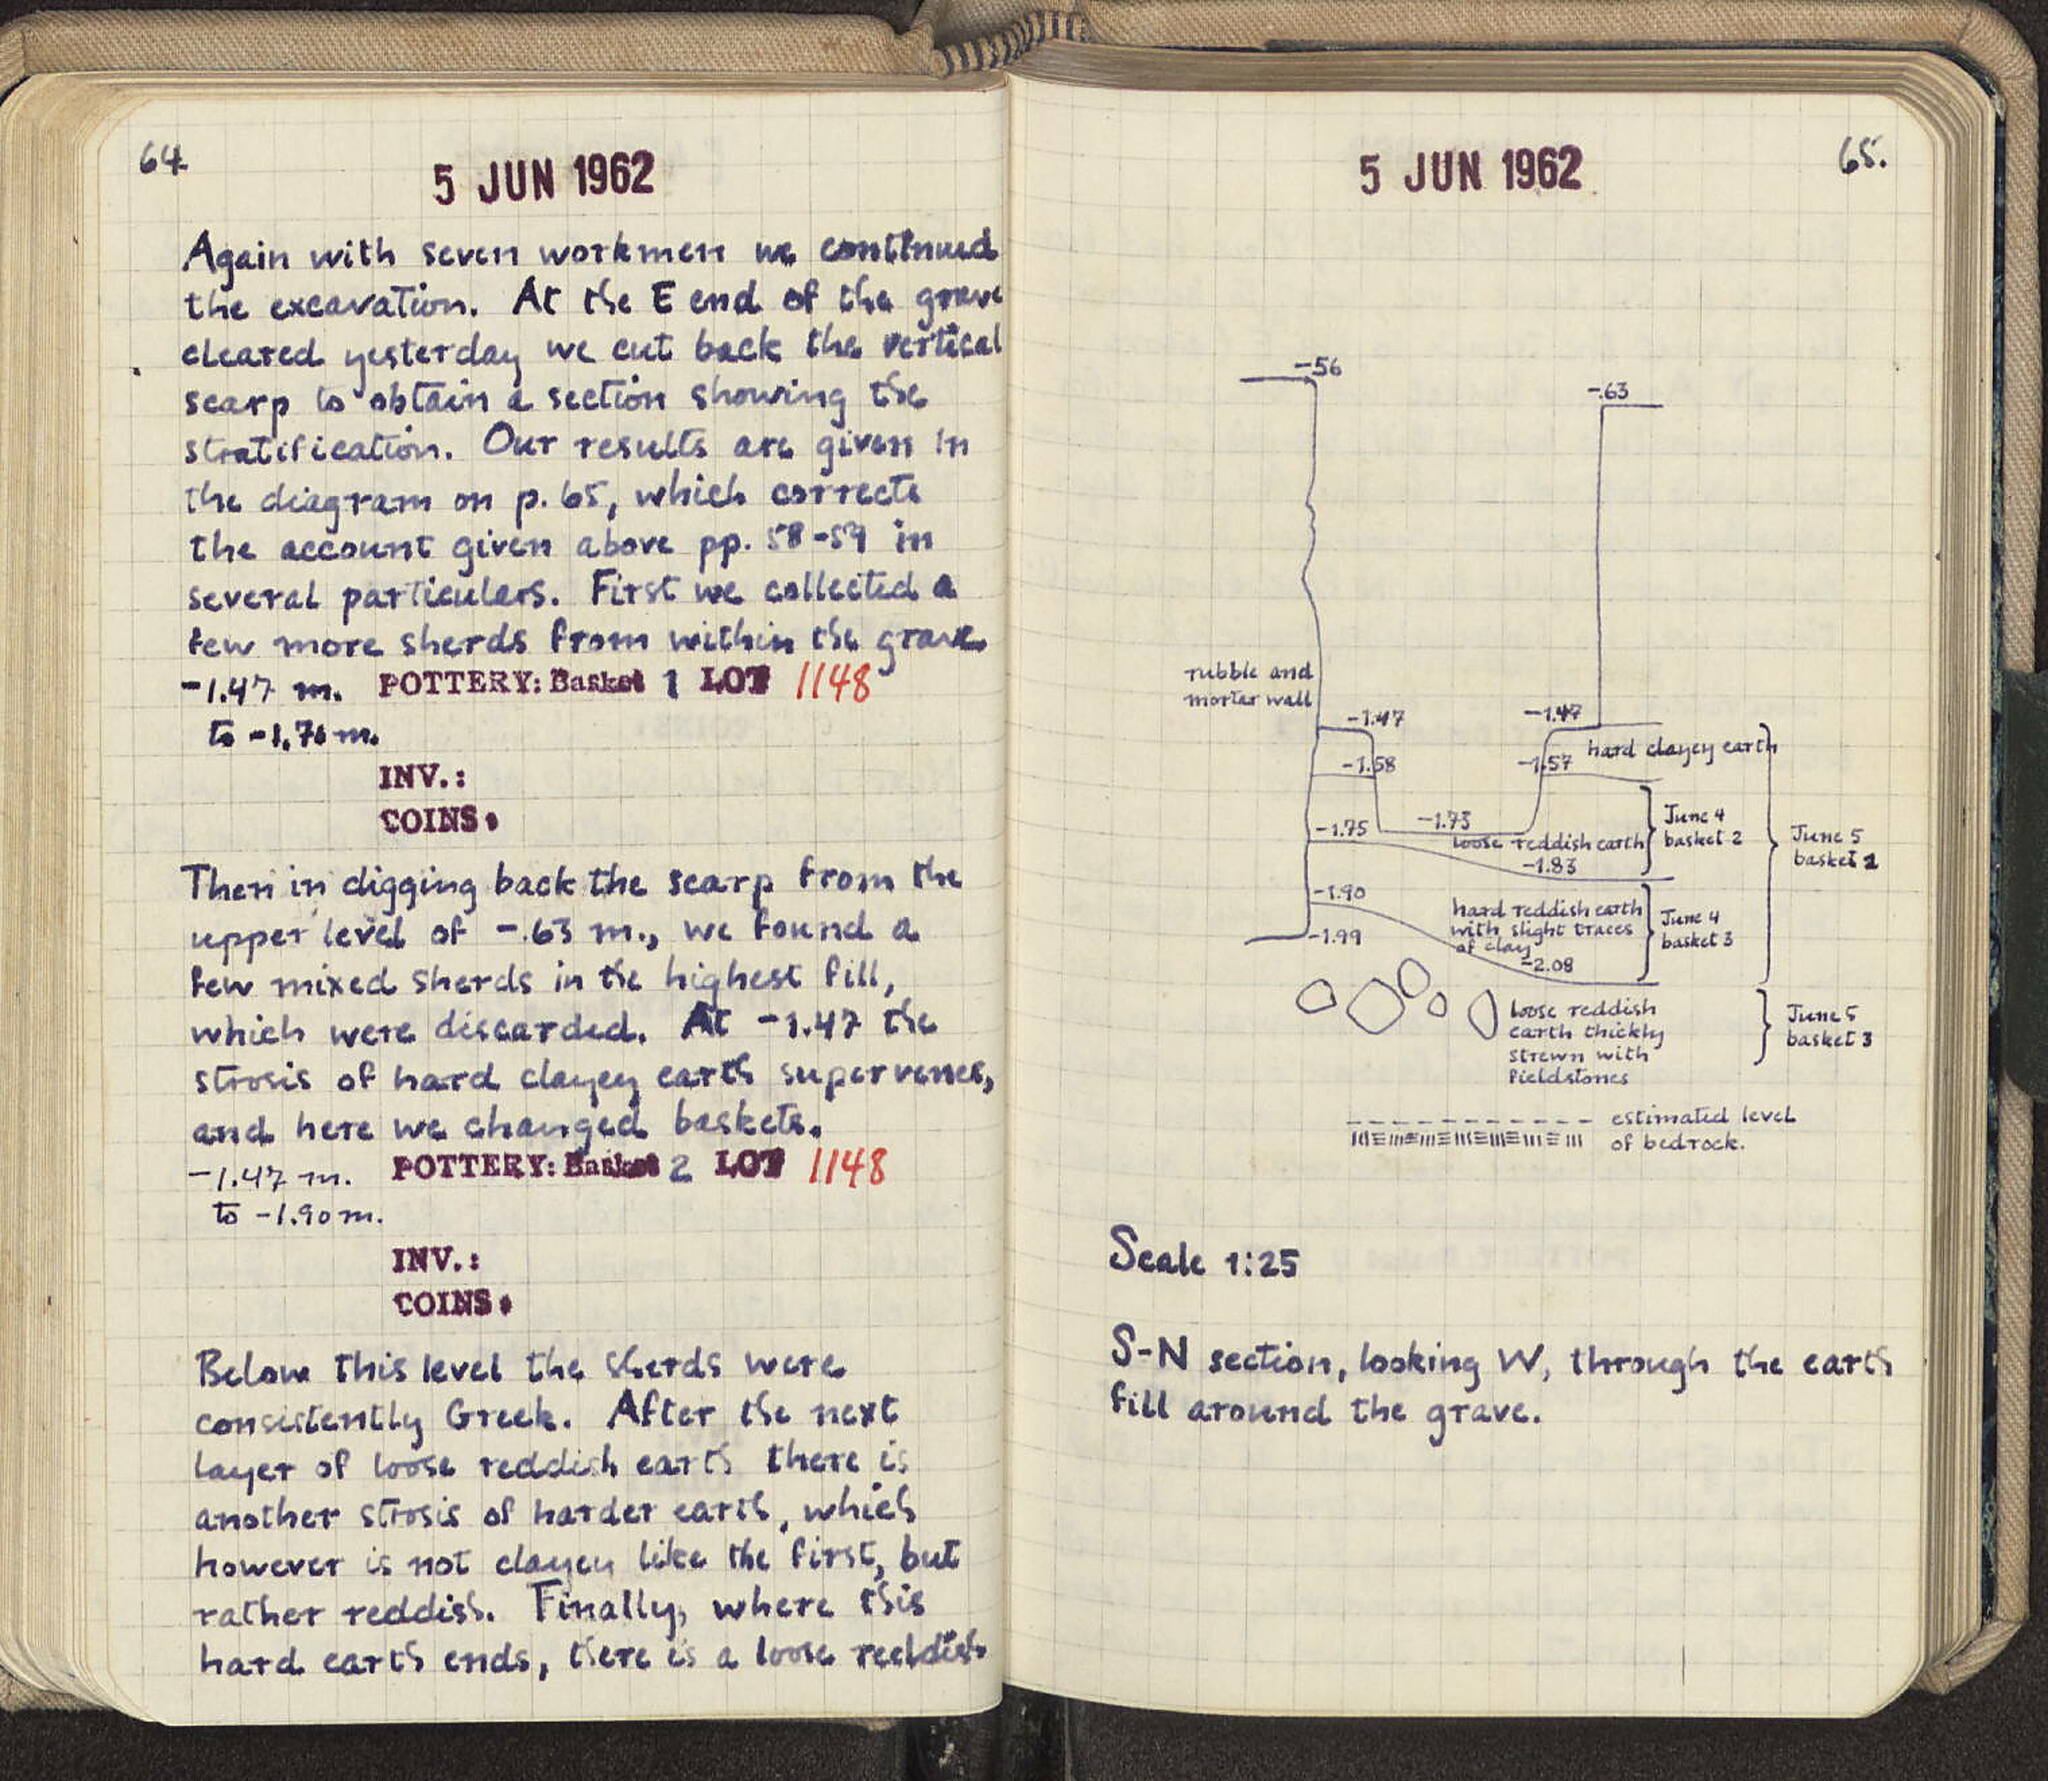 64
5 JUN 1962
Again with seven workmen we continued
the excavation. At the E end of the grave
cleared yesterday we cut back the vertical
scarp to obtain a section showing the
stratification. Our results are given in
the diagram on p. 65, which corrects
the account given above pp. 58-59 in
several particulars. First we collected a
few more sherds from within the grave.
-1.47 m. POTTERY: Basket 1 LOT 1148
to -1.76 m.
INV.:
COINS:
Then in digging back the scarp from the
upper level of -.63 m., we found a
few mixed sherds in the highest fill,
which were discarded. At -1.47 the
strosis of hard clayey earth supervenes,
and here we changed baskets.
-1.47 m. POTTERY: Basket 2 LOT 1148
to -1.90 m.
INV.:
COINS:
Below this level the sherds were
consistently Greek. After the next
layer of loose reddish earth there is
another strosis of harder earth, which
however is not clayey like the first, but
rather reddish. Finally, where this
hard earth ends, there is a loose reddish
65.
5 JUN 1962
-.56
-.63
rubble and
mortar wall
-1.47
-1.47
hard clayey earth
-1.58
-1.57
-1.75
-1.73
loose reddish earth
-1.83
June 4
basket 2
June 5
basket 2
-1.90
hard reddish earth
with slight traces
of clay
-1.99
-2.08
June 4
basket 3
loose reddish
earth thickly
strewn with
fieldstones
June 5
basket 3
estimated level
of bedrock.
Scale 1:25
S-N section, looking W, through the earth
fill around the grave.